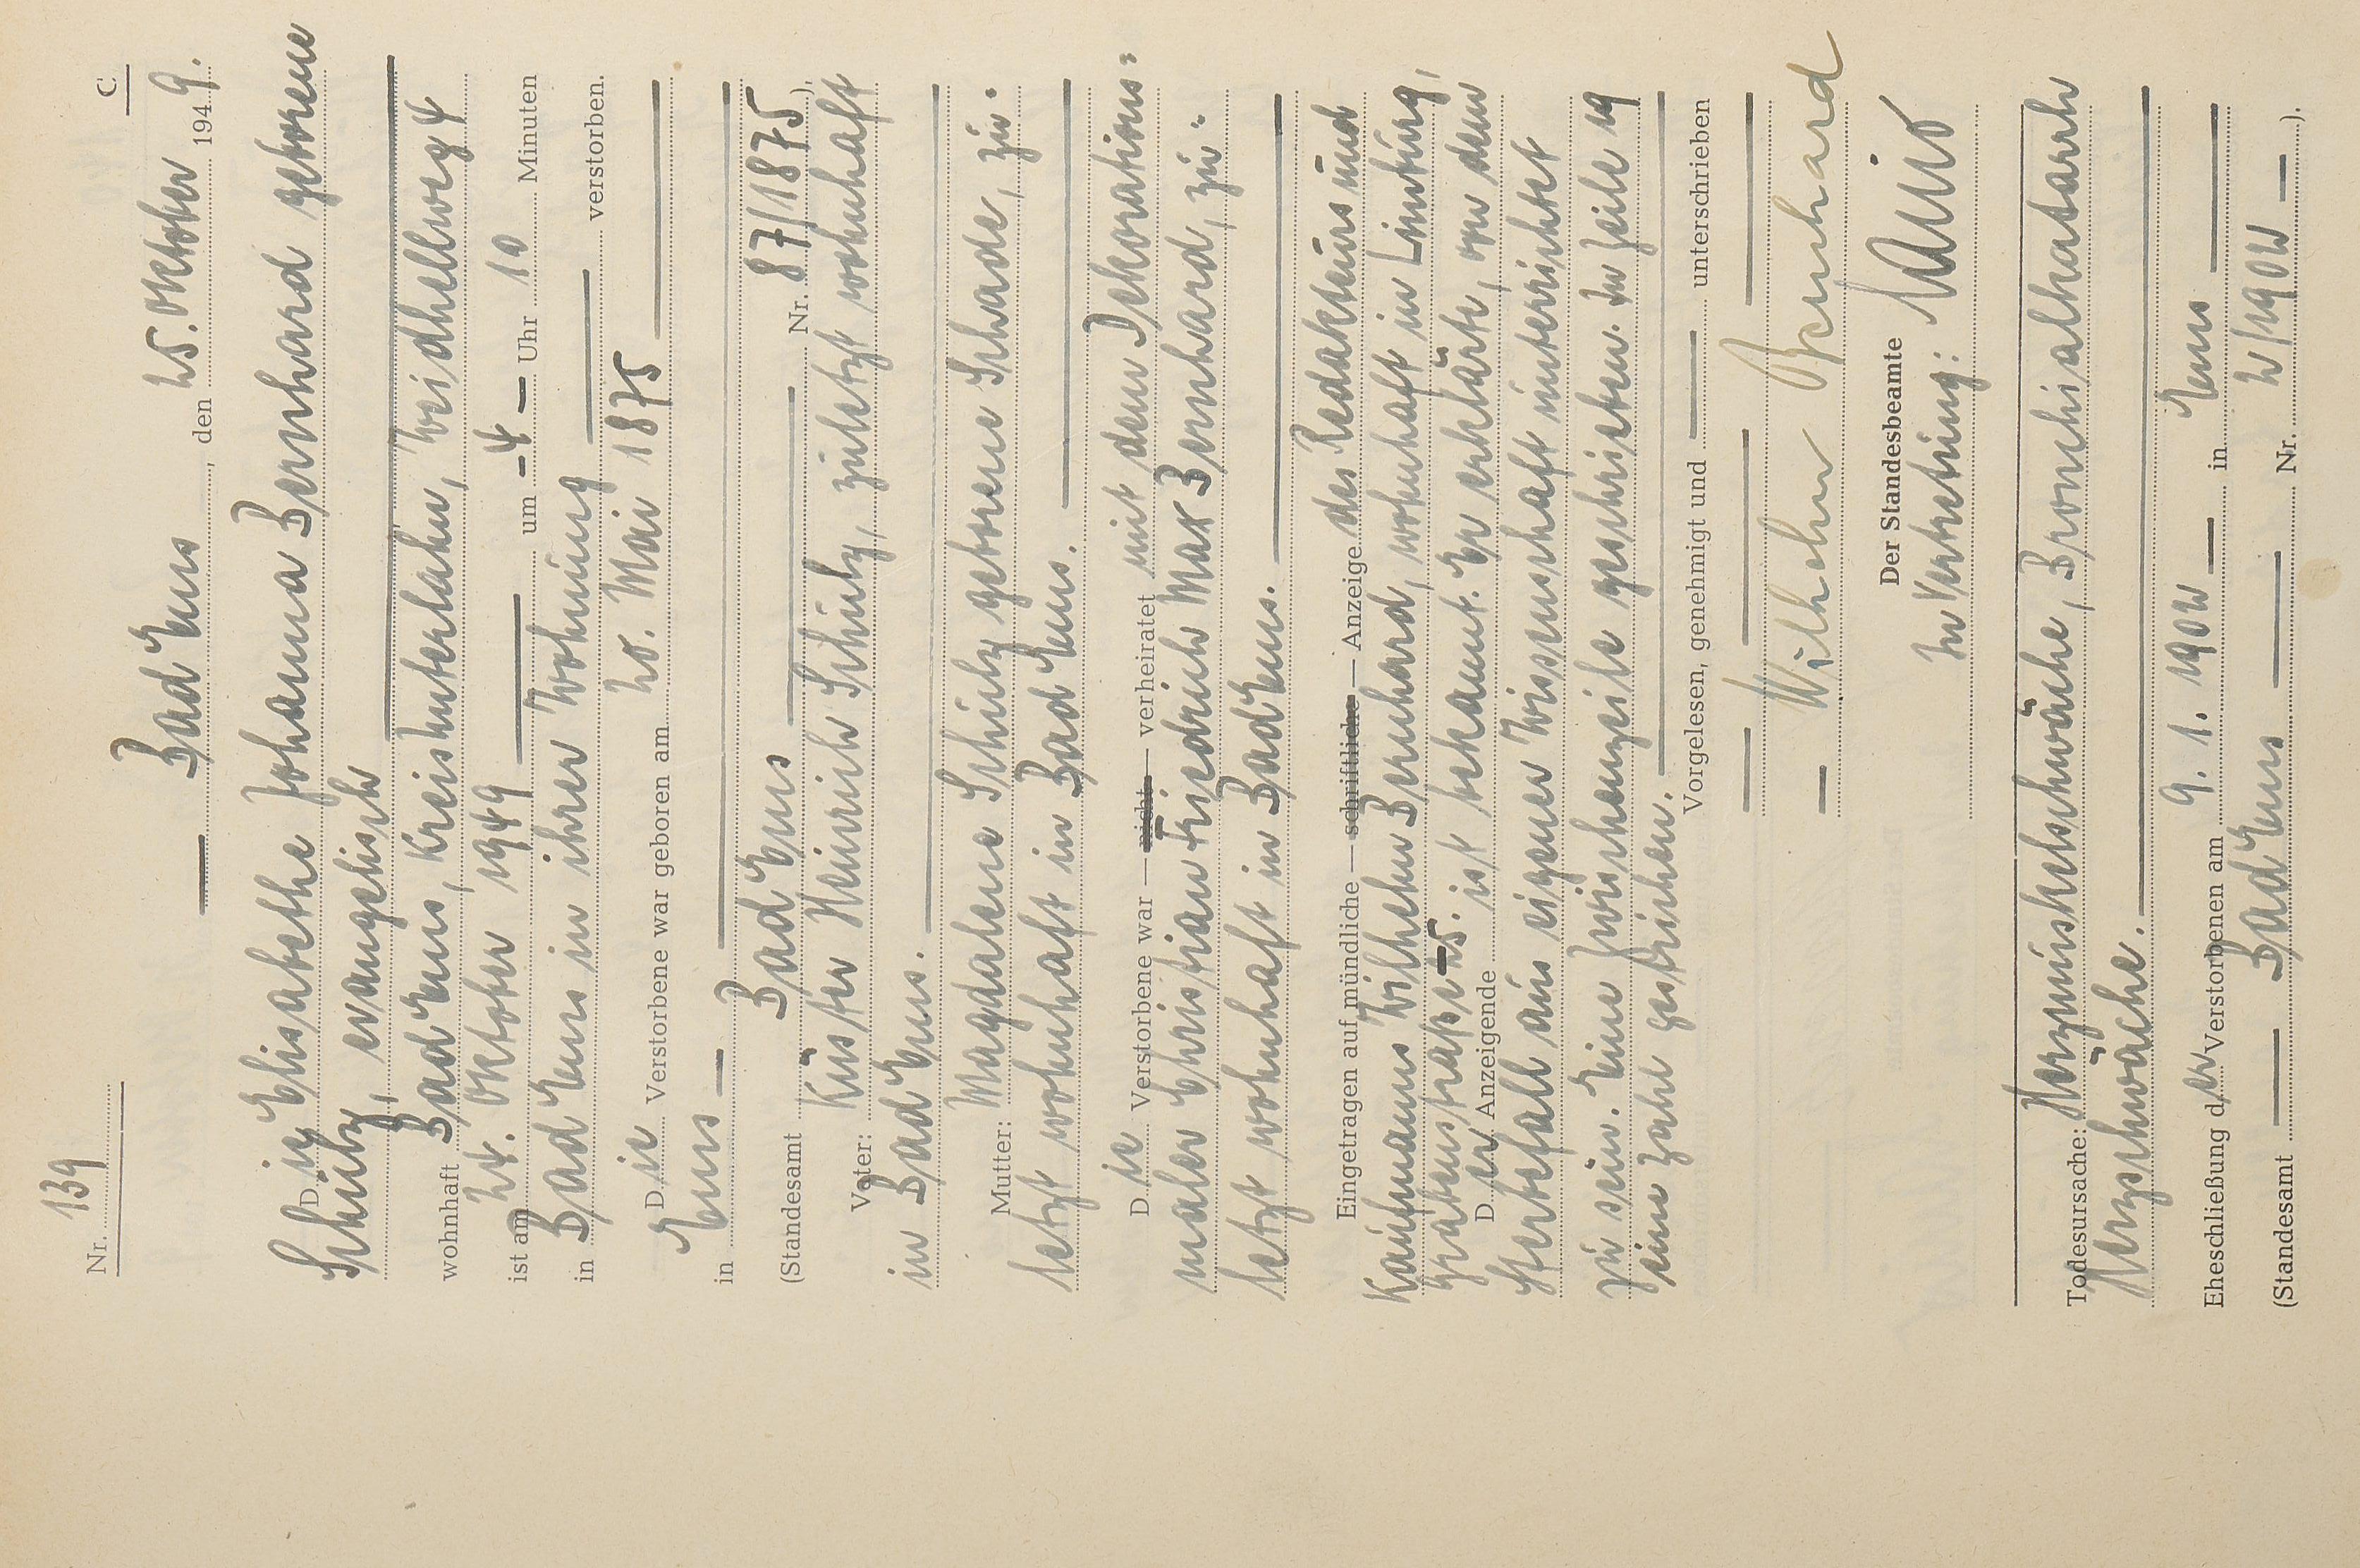 Nr. 139
C.
Bad Ems, den 25. Oktober 1949.
Die Elisabethe Johanna Bernhard geborene
Schulz, evangelisch
wohnhaft Bad Ems, Kreis Unterlahn, Weidhellweg 4
ist am 24. Oktober 1949 um -4- Uhr 10 Minuten
in Bad Ems in ihrer Wohnung verstorben.
Die Verstorbene war geboren am 20. Mai 1875
in Ems
(Standesamt Bad Ems Nr. 87/1875),
Vater: Küster Heinrich Schulz, zuletzt wohnhaft
in Bad Ems.
Mutter: Magdalene Schulz geborene Schade, zu-
letzt wohnhaft in Bad Ems.
Die Verstorbene war — nicht — verheiratet mit dem Dekorations-
maler Christian Friedrich Max Bernhard, zu-
letzt wohnhaft in Bad Ems.
Eingetragen auf mündliche — schriftliche — Anzeige des Redakteurs und
Kaufmanns Wilhelm Bernhard, wohnhaft in Limburg,
5.
Der Anzeigende ist bekannt. Er erklärte, von dem
Sterbefall aus eigener Wissenschaft unterrichtet
zu sein. Eine Zwischenzeile geschrieben. In Zeile 19
eine Zahl gestrichen.
Vorgelesen, genehmigt und unterschrieben
Wilhelm Bernhard
Der Standesbeamte
In Vertretung:
Todesursache: Herzmuskelschwäche, Bronchialkatarrh
Herzschwäche.
Eheschließung der Verstorbenen am 9. 1. 1902 in Ems
(Standesamt Bad Ems Nr. 2/1902).